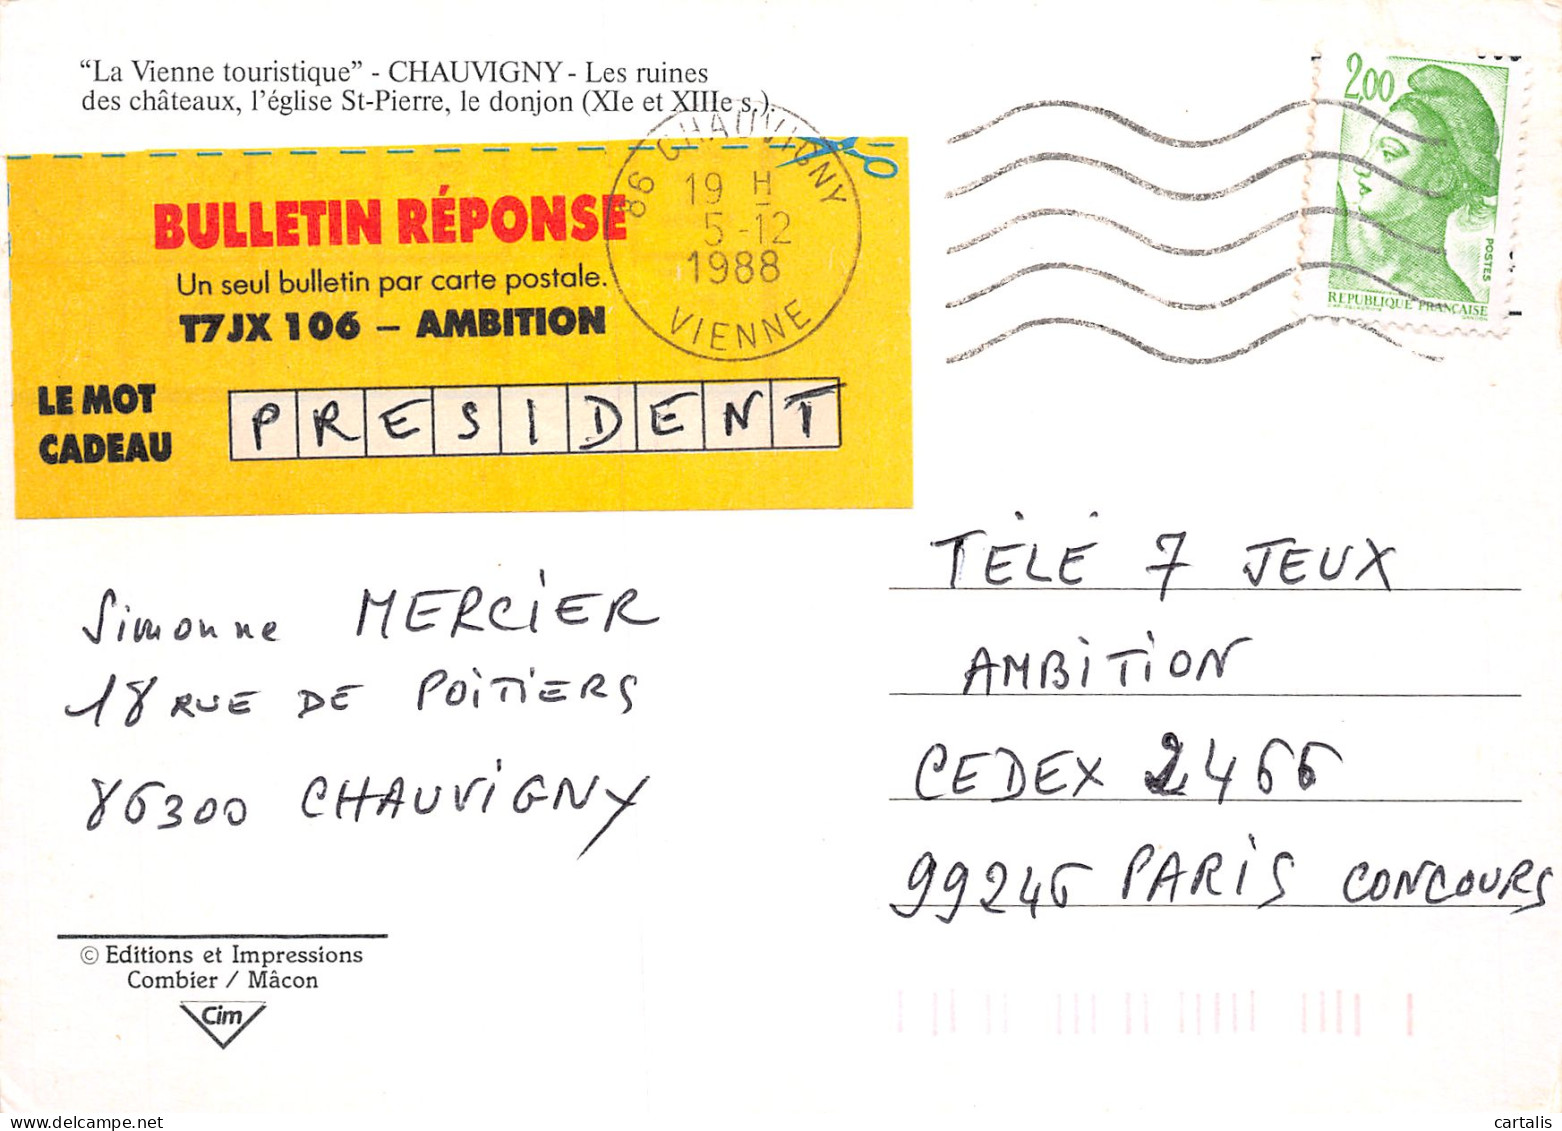 “La Vienne touristique” - CHAUVIGNY - Les ruines
des châteaux, l’église St-Pierre, le donjon (XIe et XIIIe s.).
86 CHAUVIGNY
19 H
5-12
1988
VIENNE
2,00
POSTES
REPUBLIQUE FRANÇAISE
BULLETIN RÉPONSE
Un seul bulletin par carte postale.
T7JX 106 – AMBITION
LE MOT
CADEAU
PRESIDENT
Simonne MERCIER
18 RUE DE POITIERS
86300 CHAUVIGNY
TÉLÉ 7 JEUX
AMBITION
CEDEX 2466
99246 PARIS CONCOURS
© Editions et Impressions
Combier / Mâcon
Cim
cartalis